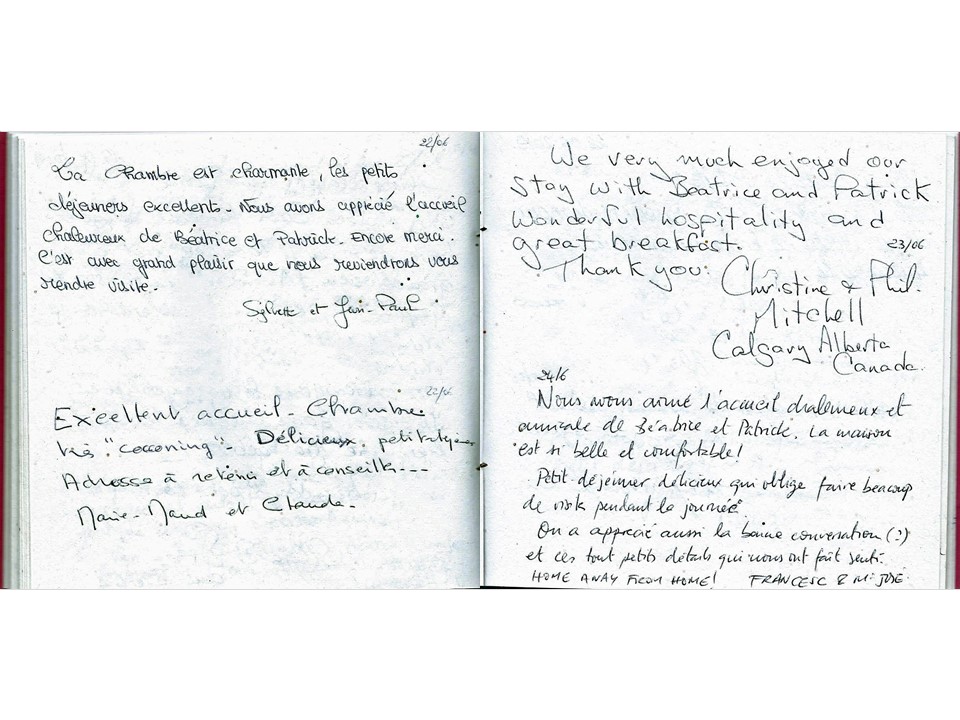 22/06
La chambre est charmante, les petits
déjeuners excellents. Nous avons apprécié l'accueil
chaleureux de Béatrice et Patrick. Encore merci.
C'est avec grand plaisir que nous reviendrons vous
rendre visite.
Sylvette et Jean-Paul
22/06
Excellent accueil - Chambre
très "cocooning" - Délicieux petit-déjeuner
Adresse à retenir et à conseiller ---
Marie-Maud et Claude.
We very much enjoyed our
stay with Beatrice and Patrick
Wonderful hospitality and
great breakfast.
23/06
Thank you.
Christine & Phil.
Mitchell
Calgary Alberta
Canada.
24/6
Nous avons aimé l'accueil chaleureux et
amicale de Béatrice et Patrick. La maison
est si belle et comfortable!
Petit déjeuner délicieux qui oblige faire beaucoup
de visits pendant la journée.
On a apprecié aussi la bonne conversation (:)
et ces tout petits détails qui nous ont fait senti.
HOME AWAY FROM HOME! FRANCESC & Mª JOSÉ